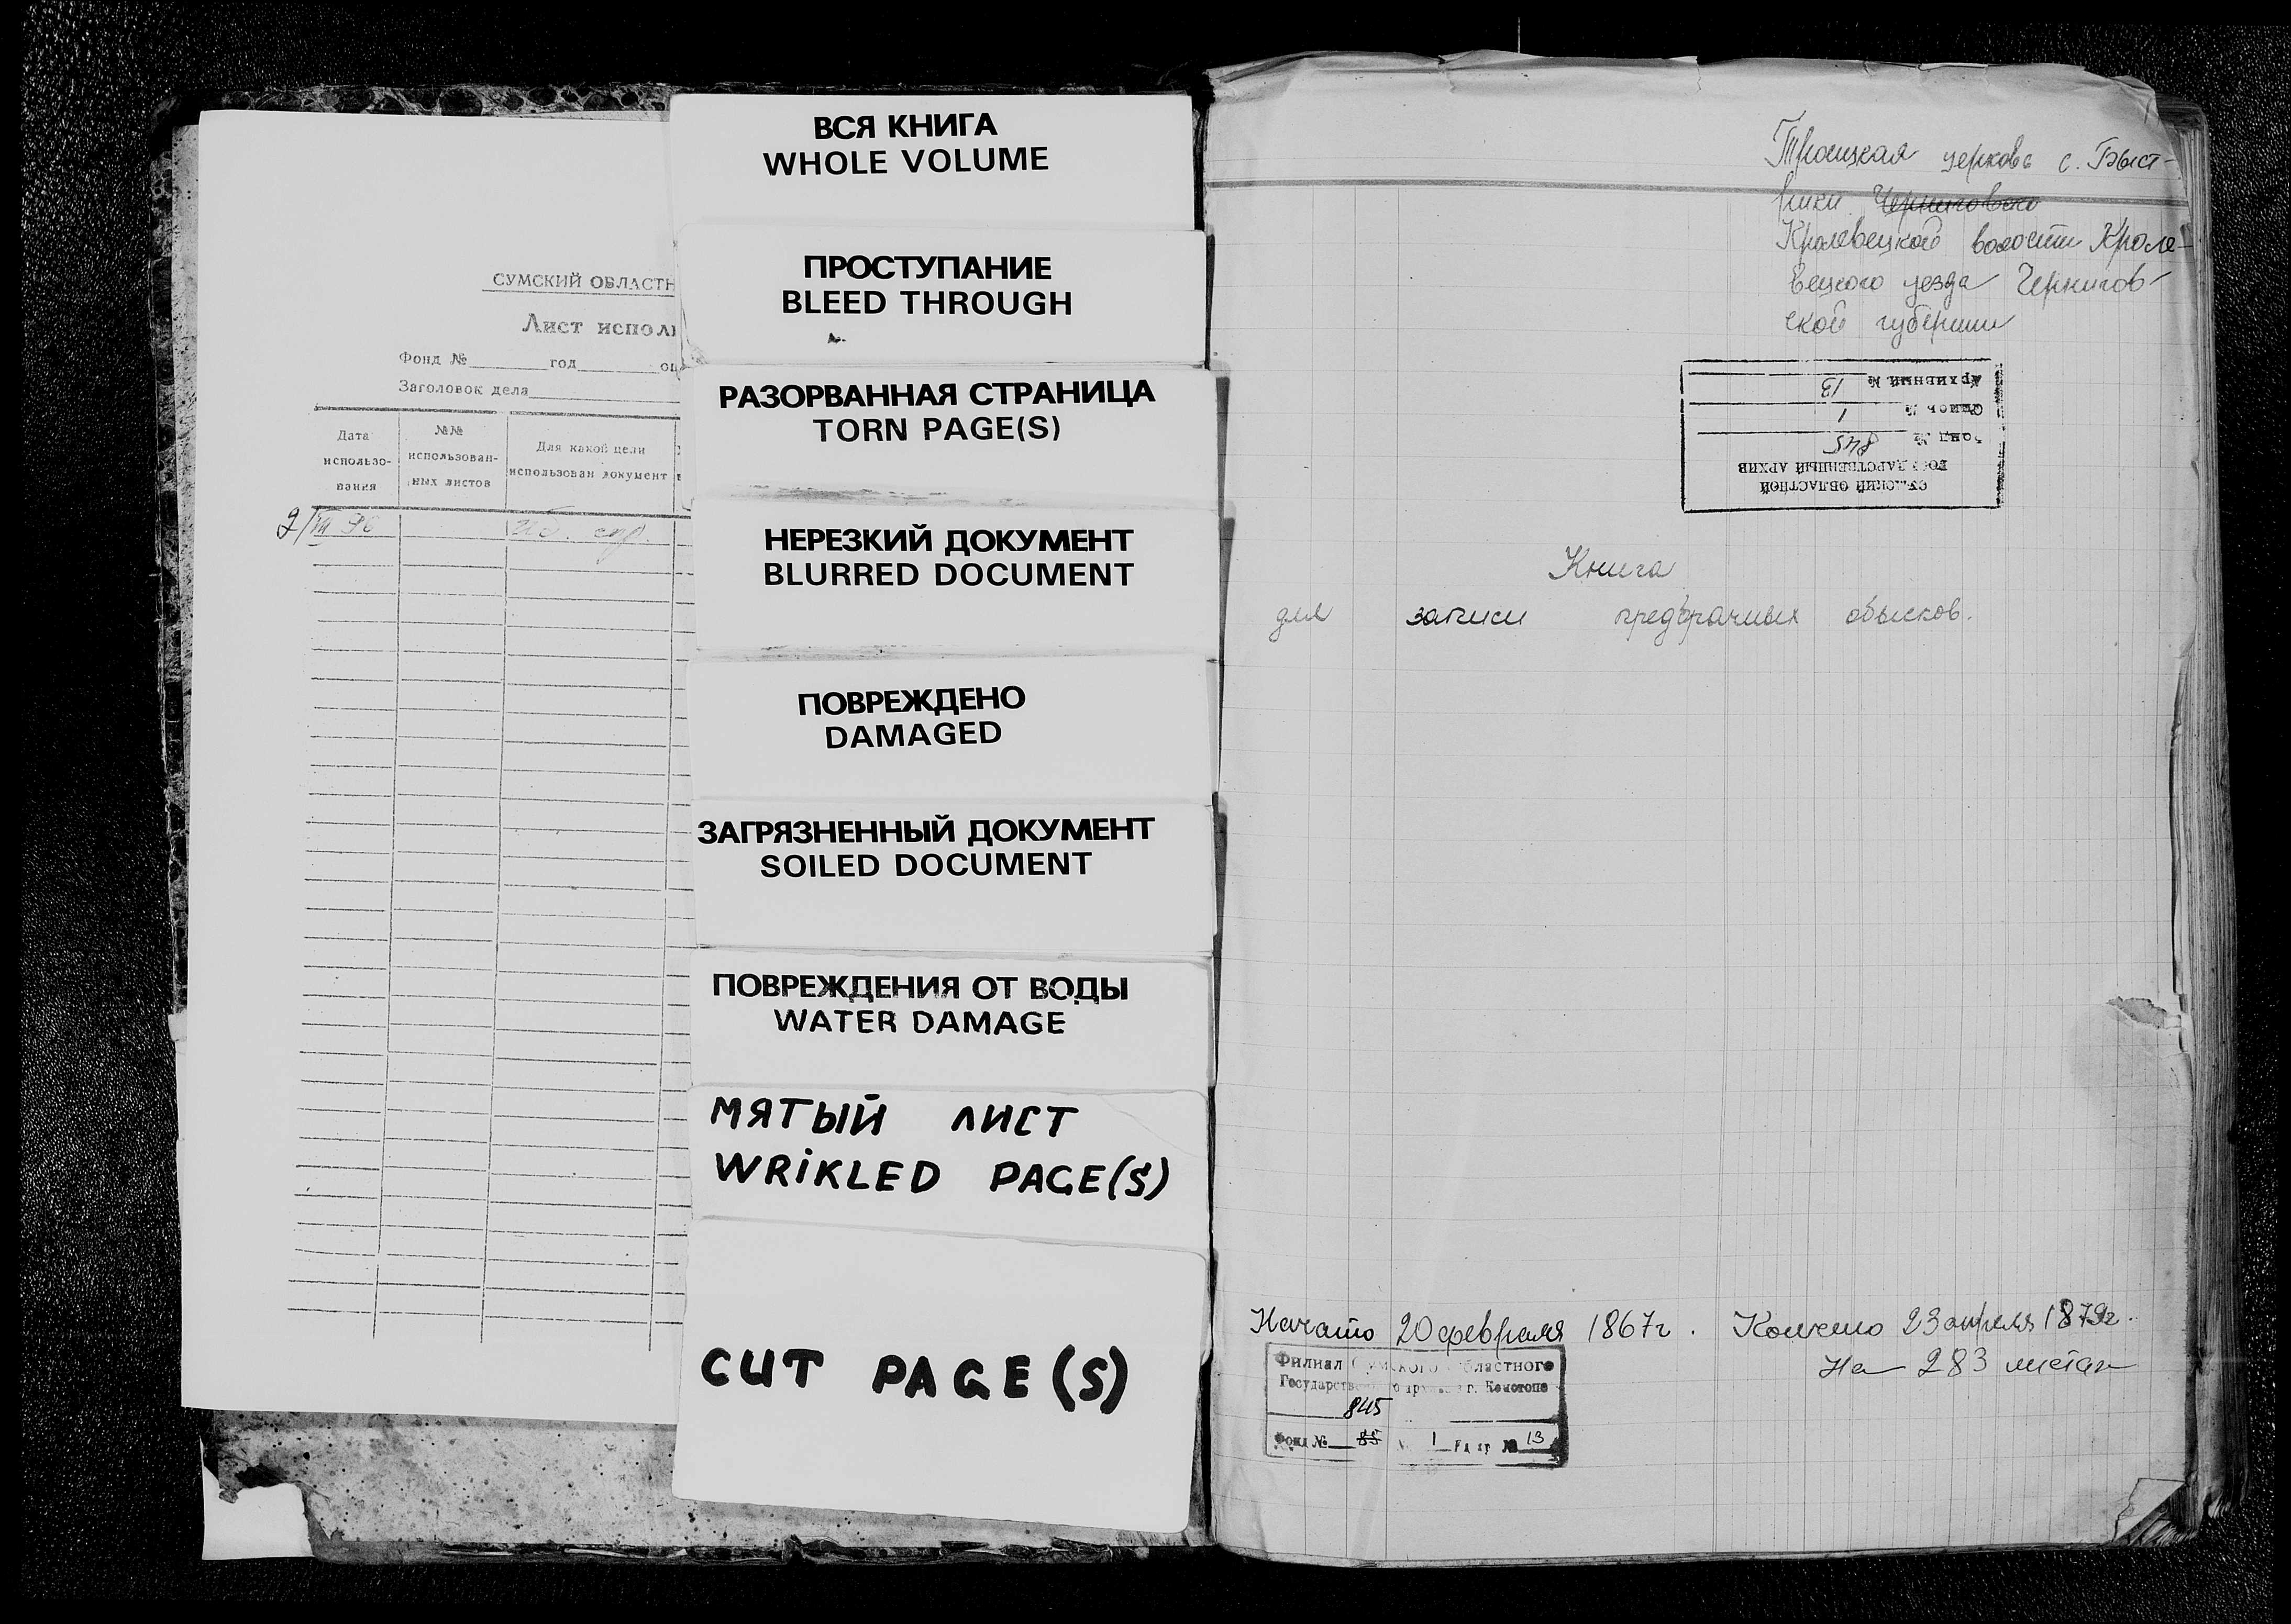 СУМСКИЙ ОБЛАСТН
Лист исполь
Фонд № год оп
Заголовок дела
Дата использо-вания
№№ использован-ных листов
Для какой цели использован документ
2/VII 96
ВСЯ КНИГА
WHOLE VOLUME
ПРОСТУПАНИЕ
BLEED THROUGH
РАЗОРВАННАЯ СТРАНИЦА
TORN PAGE(S)
НЕРЕЗКИЙ ДОКУМЕНТ
BLURRED DOCUMENT
ПОВРЕЖДЕНО
DAMAGED
ЗАГРЯЗНЕННЫЙ ДОКУМЕНТ
SOILED DOCUMENT
ПОВРЕЖДЕНИЯ ОТ ВОДЫ
WATER DAMAGE
МЯТЫЙ ЛИСТ
WRIKLED PAGE(S)
CUT PAGE(S)
Троицкая церковь с. Быст-
рики Черниговско
Кролевецкой волости Кроле-
вецкого уезда Чернигов-
ской губернии
СУМСКИЙ ОБЛАСТНОЙ
ГОСУДАРСТВЕННЫЙ АРХИВ
Фонд № 845
Опись № 1
Архивный № 13
Книга
для записи предбрачных обысков.
Начато 20 февраля 1867г. Кончено 23 апреля 1879г.
На 283 листах
Филиал Сумского областного
Государственного архива в г. Конотопе
845
Фонд № 85 1 Ед хр № 13